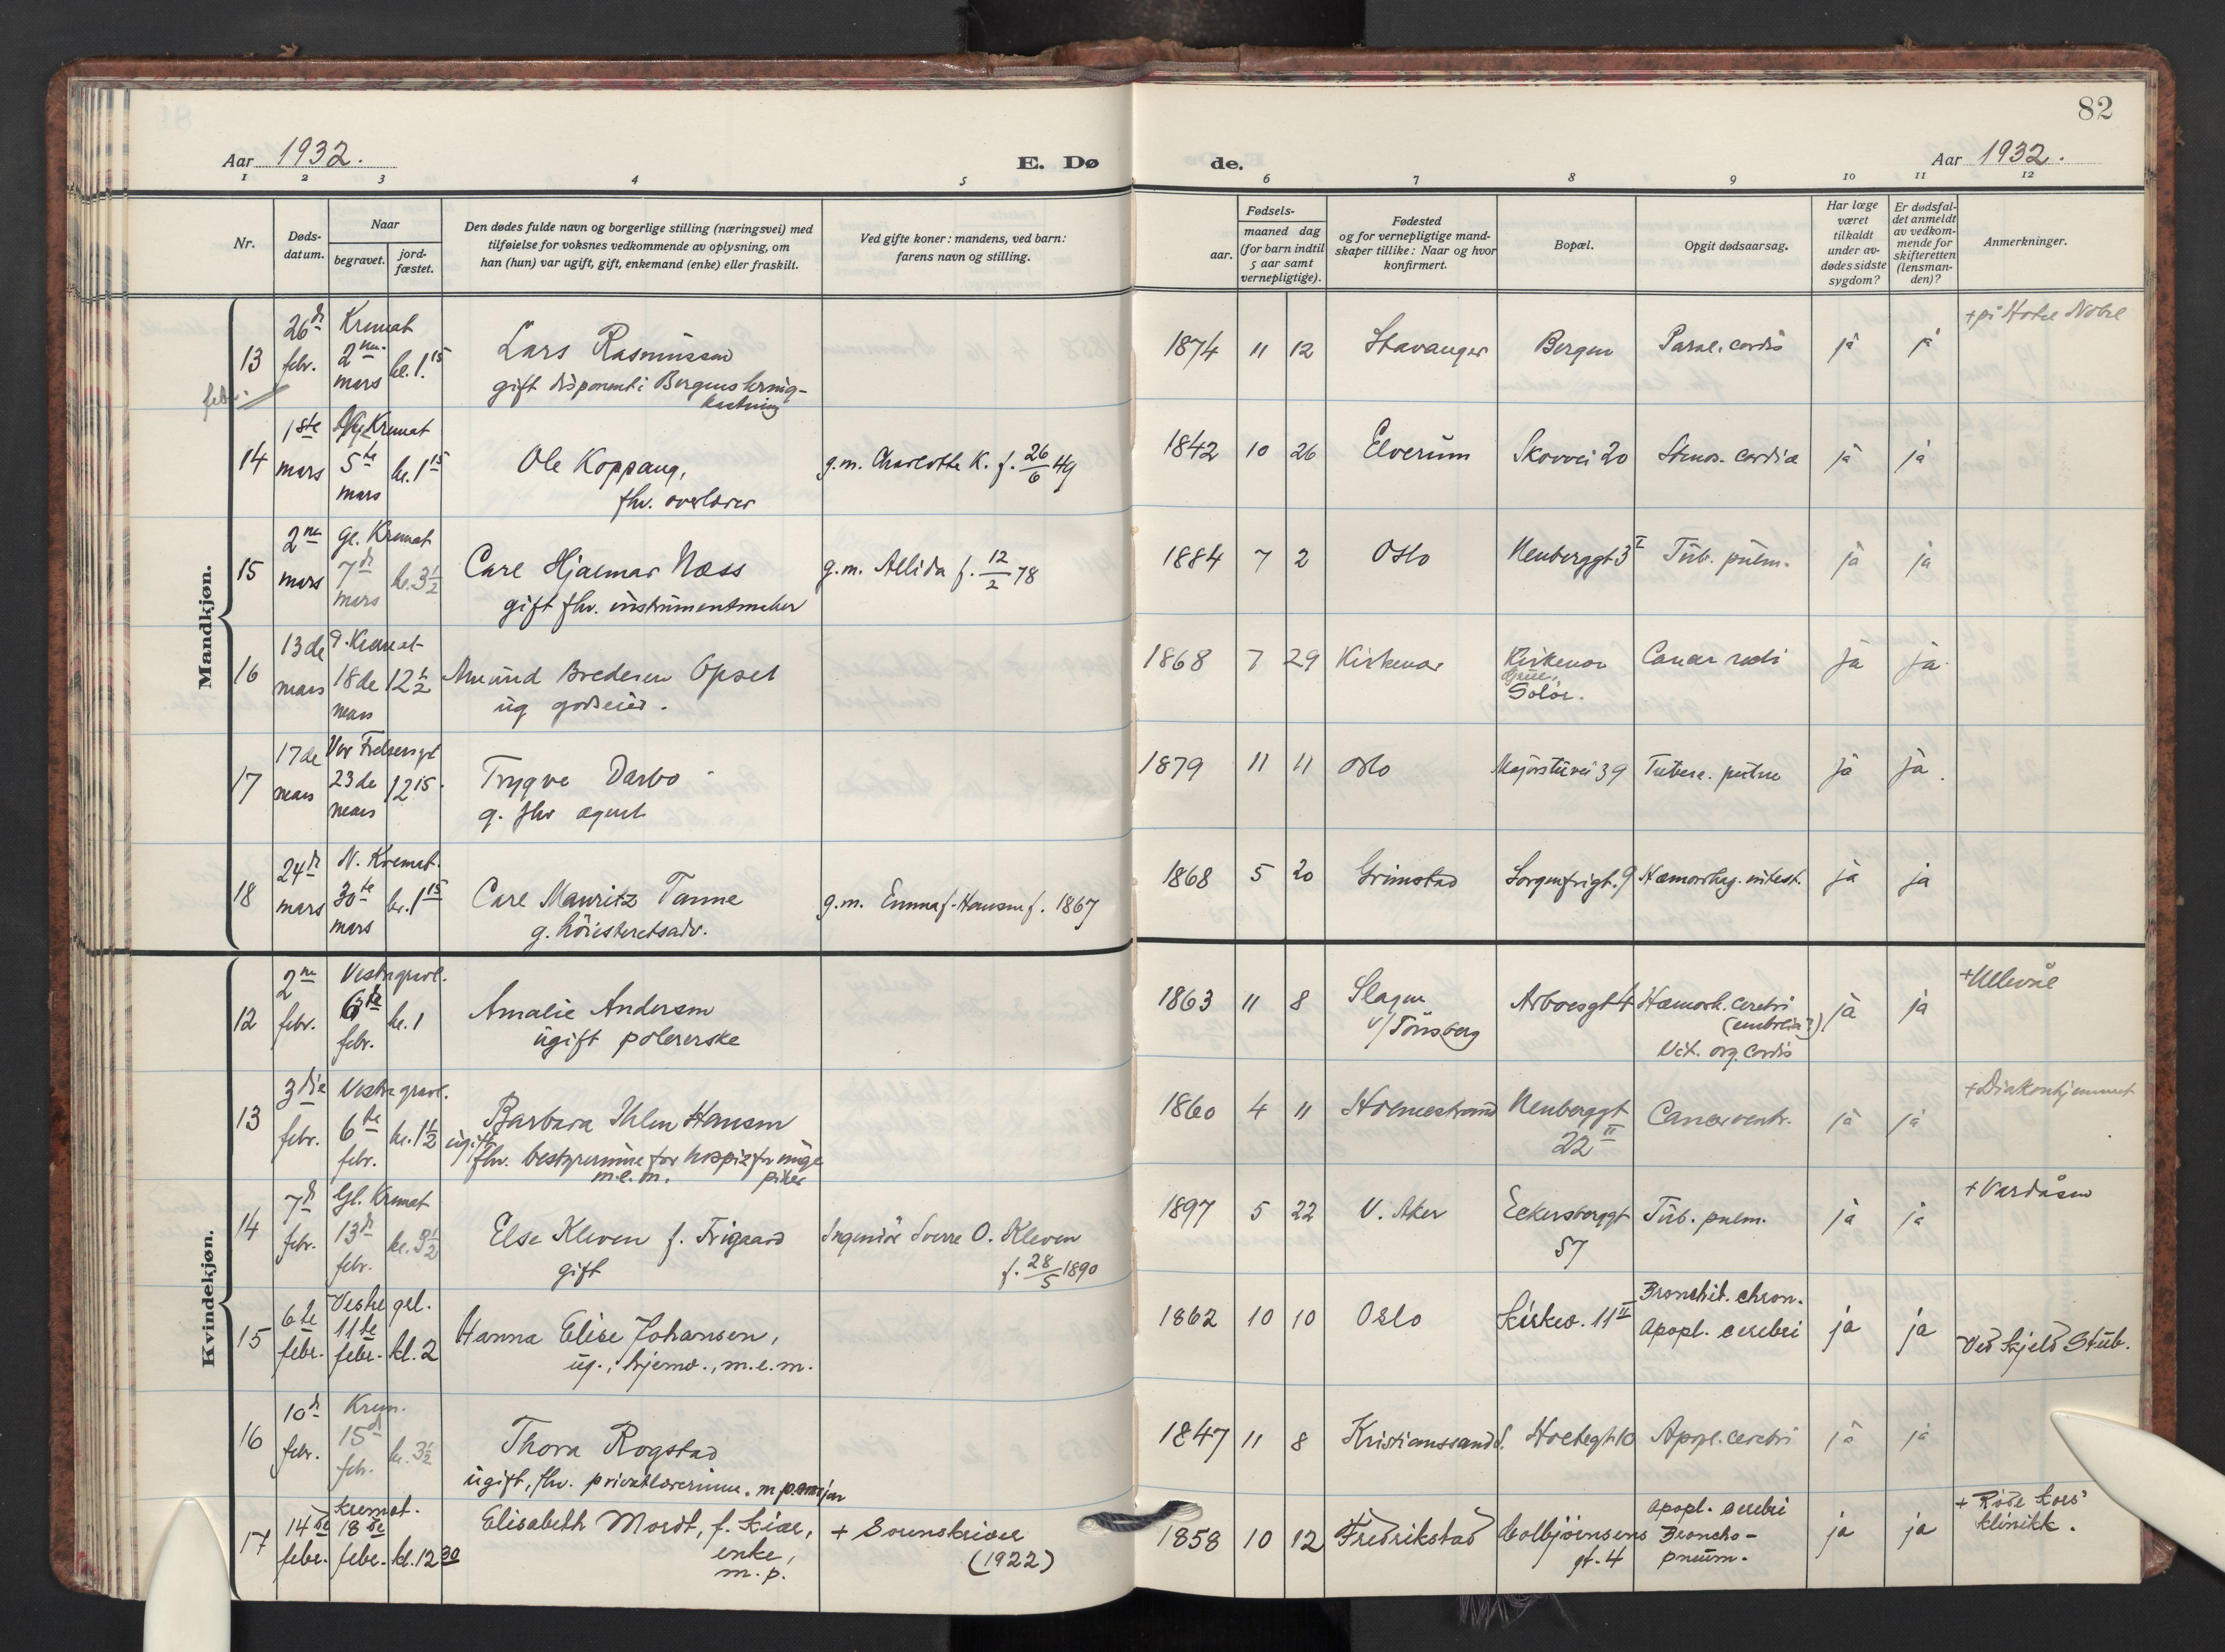 82
Aar 1932.
E. Døde.
Aar 1932.
1 2 3 4 5 6 7 8 9 10 11 12
Nr.
Døds-
datum.
Naar
begravet.
jord-
fæstet.
Den dødes fulde navn og borgerlige stilling (næringsvei) med
tilføielse for voksnes vedkommende av oplysning, om
han (hun) var ugift, gift, enkemand (enke) eller fraskilt.
Ved gifte koner: mandens, ved barn:
farens navn og stilling.
Fødsels-
aar.
maaned dag
(for barn indtil
5 aar samt
vernepligtige).
Fødested
og for vernepligtige mand-
skaper tillike: Naar og hvor
konfirmert.
Bopæl.
Opgit dødsaarsag.
Har læge
været
tilkaldt
under av-
dødes sidste
sygdom?
Er dødsfal-
det anmeldt
av vedkom-
mende for
skifteretten
(lensman-
den)?
Anmerkninger.
Mandkjøn.
13 26de febr. Kremat 2nn. mars kl. 1.15
Lars Rasmussen
gift disponent i Bergens kring-
kastning
1874 11 12 Stavanger Bergen Paral. cordis ja ja + på Hotel Nobel
febr.
14 1ste mars Kremat 5te mars kl. 1 15
Ole Koppang,
fhv. overlærer
g.m. Charlotte K. f. 26/6 49
1842 10 26 Elverum Skovvei 20 Stenos. cordis ja ja
15 2nn mars Gl. Kremat 7de mars kl. 3 1/2
Carl Hjalmar Næss
gift fhv. instrumentmaker
g.m. Allida f. 12/2 78
1884 7 2 Oslo Neuberggt 3 I Tub. pulm. ja ja
16 13de mars g. Kremat 18de mars 12 1/2
Amund Bredesen Opset
ug godseier.
1868 7 29 Kirkenær Kirkenær
Grue,
Solør.
Cancer recti ja ja.
17 17de mars Vor Frelsersgl 23de mars 12 15.
Trygve Darbo
g. fhv agent
1879 11 11 Oslo Majorstuvei 39 Tuberc. pulm ja ja.
18 24de mars N. Kremat. 30te mars kl. 1 15
Carl Mauritz Tanne
g. höiesteretsadv.
g.m. Emma f. Hansen f. 1867
1868 5 20 Grimstad Sorgenfrigt. 9 Hæmorrhag. intest. ja ja
Kvindekjøn.
12 2nn febr. Vestre gravl. 6te febr. kl. 1
Amalie Andersen
ugift polererske
1863 11 8 Slagen
v/Tönsberg
Arboesgt 4 Hæmorh. cerebri
(emboli?)
Vit. org. cordis
ja ja + Ullevål
13 3die febr. Vestre gravl. 6te febr. kl. 1 1/2
Barbara Ihlen Hansen
ugift
fhv. bestyrerinne for hospiz for unge
piker
m.e.m.
1860 4 11 Holmestrand Neuberggt
22 II
Cancer ventr. ja ja + Diakonhjemmet
14 7de febr. Gl. Kremat 13de febr. kl. 3 1/2
Else Kleven f. Frigaard
gift
Ingeniör Sverre O. Kleven
f. 28/5 1890
1897 5 22 V. Aker Eckersberggt
57
Tub. pulm. ja ja + Vardåsen
15 6te febr. Vestre grl. 11te febr. kl. 2
Hanna Elise Johansen,
ug., hjemv., m.e.m.
1862 10 10 Oslo Kirkev. 11 II Bronchit. chron.
Apopl. cerebri
ja ja Ved Skjeld Stub.
16 10de febr. Krem. 15de febr. kl. 3 1/2
Thora Rogstad
ugift, fhv. privatlærerinne. m pensjon
1847 11 8 Kristianssand S. Holtegt 10 Appl. cerebri ja ja
17 14de febr. Kremat. 18de febr. kl. 12 30
Elisabeth Mordt, f. Kiær,
enke,
m.p.
+ Sorenskriver
(1922)
1858 10 12 Fredrikstad Colbjörnsens
gt. 4
Apopl. cerebri
Broncho-
pneum.
ja ja + Röde Kors'
klinikk.